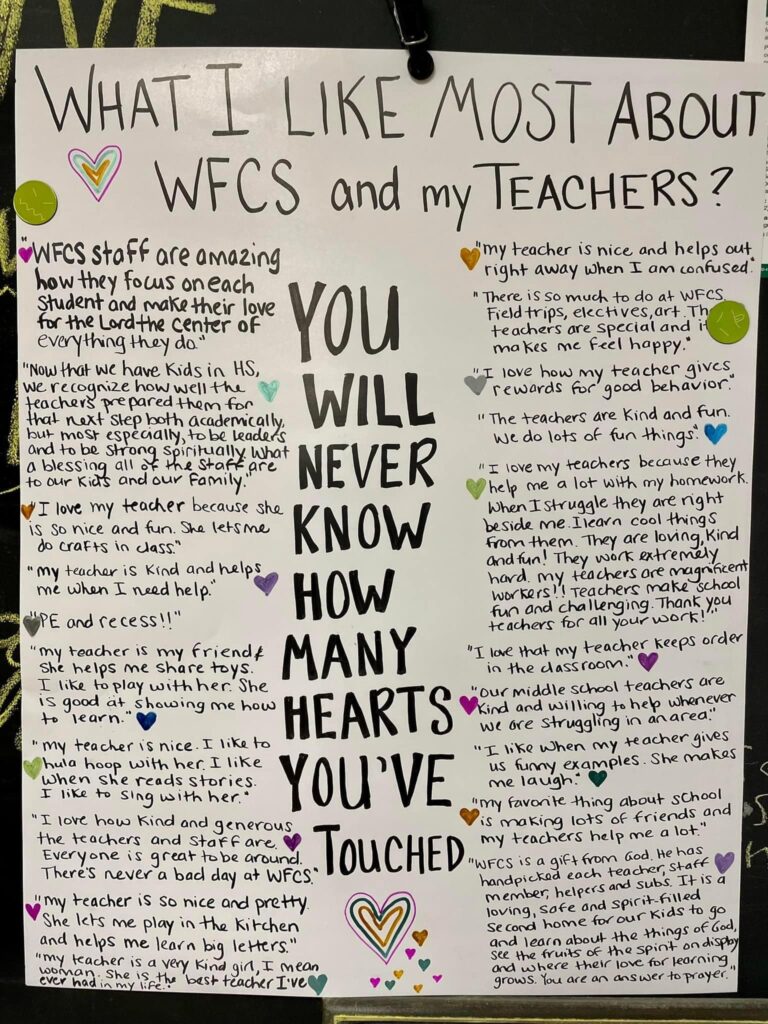 WHAT I LIKE MOST ABOUT
WFCS and my TEACHERS?
"WFCS staff are amazing
how they focus on each
Student and make their love
for the Lord the center of
everything they do."
"Now that we have Kids in HS,
we recognize how well the
teachers prepared them for
that next step both academically,
but most especially, to be leaders
and to be strong spiritually. What
a blessing all of the staff are
to our Kids and our family."
"I love my teacher because she
is so nice and fun. She lets me
do crafts in class."
"my teacher is Kind and helps
me when I need help."
"PE and recess!!"
"my teacher is my friend &
She helps me share toys.
I like to play with her. She
is good at showing me how
to learn."
"my teacher is nice. I like to
hula hoop with her. I like
when she reads stories.
I like to sing with her."
"I love how Kind and generous
the teachers and staff are.
Everyone is great to be around.
There's never a bad day at WFCS."
"my teacher is so nice and pretty.
She lets me play in the Kitchen
and helps me learn big letters."
"my teacher is a very Kind girl, I mean
woman. She is the best teacher I've
ever had in my life."
YOU
WILL
NEVER
KNOW
HOW
MANY
HEARTS
YOU'VE
TOUCHED
"my teacher is nice and helps out
right away when I am confused."
"There is so much to do at WFCS.
Field trips, electives, art. The
teachers are special and it
makes me feel happy."
"I love how my teacher gives
rewards for good behavior."
"The teachers are Kind and fun.
We do lots of fun things."
"I love my teachers because they
help me a lot with my homework.
When I struggle they are right
beside me. I learn cool things
from them. They are loving, Kind
and fun! They work extremely
hard. my teachers are magnificent
workers!! Teachers make school
fun and challenging. Thank you
teachers for all your work!"
"I love that my teacher keeps order
in the classroom."
"Our middle school teachers are
Kind and willing to help whenever
we are struggling in an area."
"I like when my teacher gives
us funny examples. She makes
me laugh."
"my favorite thing about school
is making lots of friends and
my teachers help me a lot."
"WFCS is a gift from God. He has
handpicked each teacher, staff
member, helpers and subs. It is a
loving, safe and spirit-filled
second home for our Kids to go
and learn about the things of God,
see the fruits of the spirit on display
and where their love for learning
grows. You are an answer to prayer."